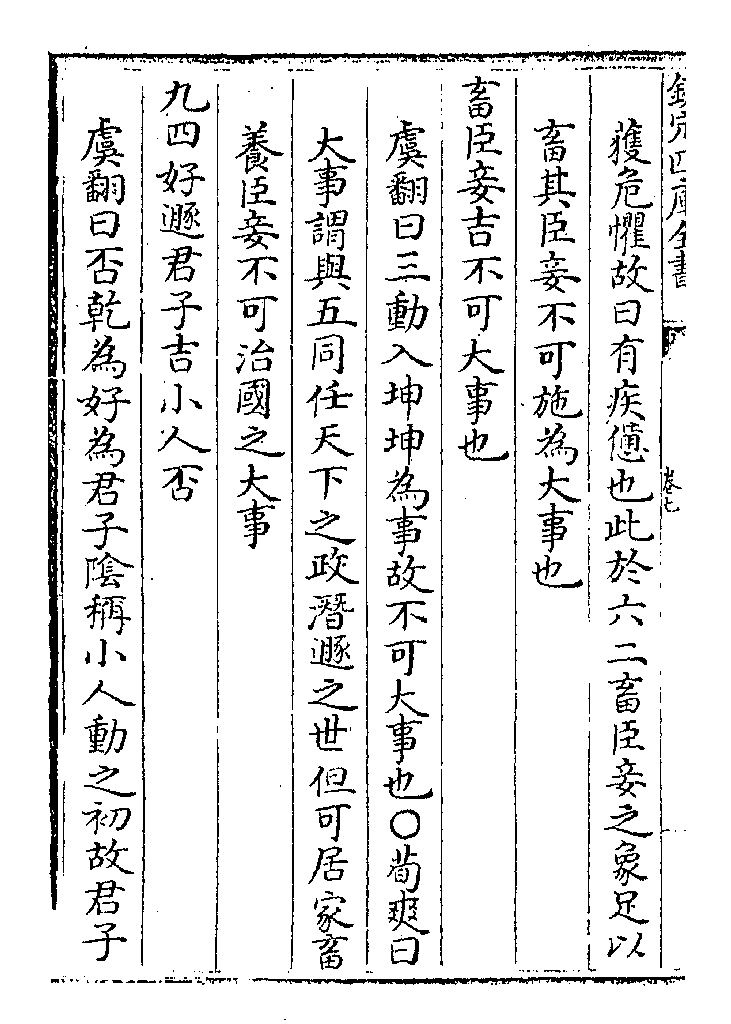 欽定四庫全書
卷七
獲危懼故曰有疾憊也此於六二畜臣妾之象足以
畜其臣妾不可施為大事也
畜臣妾吉不可大事也
虞翻曰三動入坤坤為事故不可大事也〇荀爽曰
大事謂與五同任天下之政潛遯之世但可居家畜
養臣妾不可治國之大事
九四好遯君子吉小人否
虞翻曰否乾為好為君子隂稱小人動之初故君子